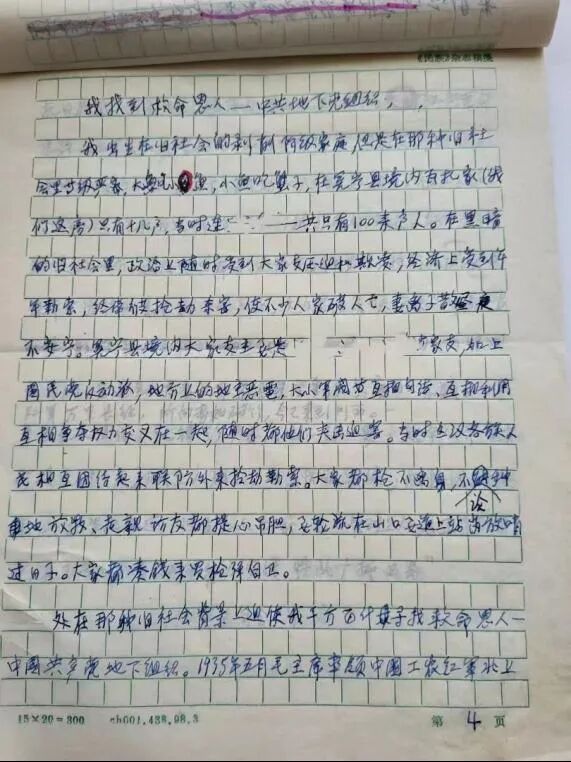 我找到救命恩人——中共地下党组织，
我出生在旧社会的剥削阶级家庭，但是在那种旧社
会里等级严密，大鱼吃小鱼，小鱼吃虾子，在冕宁县境内有扎家（我
们这房）只有十几户，当时连 一共只有100来户人。在黑暗
的旧社会里，政治上随时受到大家支压迫和欺凌，经济上受到
勒索，经常被抢劫杀害，使不少人家破人亡，妻离子散
不安宁。冕宁县境内大家支主要是 家支，加上
国民党反动派，地方上的地主恶霸，大小军阀等互相勾结、互相利用
互相争夺权力交叉在一起，随时都他们夹击迫害。当时各族人
民相互团结起来联防外来抢劫勒索。大家都枪不离身，不论种
地放牧、走亲访友都提心吊胆，要轮流在山口要道上站岗放哨
过日子。大家都凑钱来买枪弹自卫。
处在那种旧社会背景上迫使我千方百计 找救命恩人——
中国共产党地下组织。1935年五月毛主席率领中国工农红军北上
15×20=300 ch001.438.98.3 第 4 页